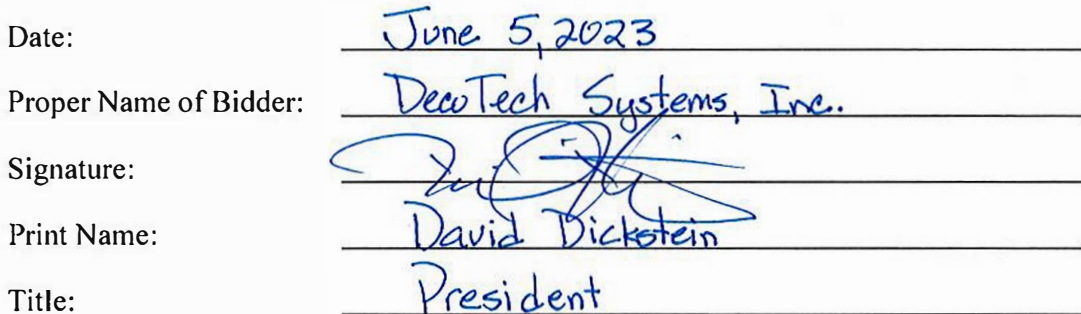 Date: June 5, 2023
Proper Name of Bidder: DecoTech Systems, Inc.
Signature:
Print Name: David Dickstein
Title: President